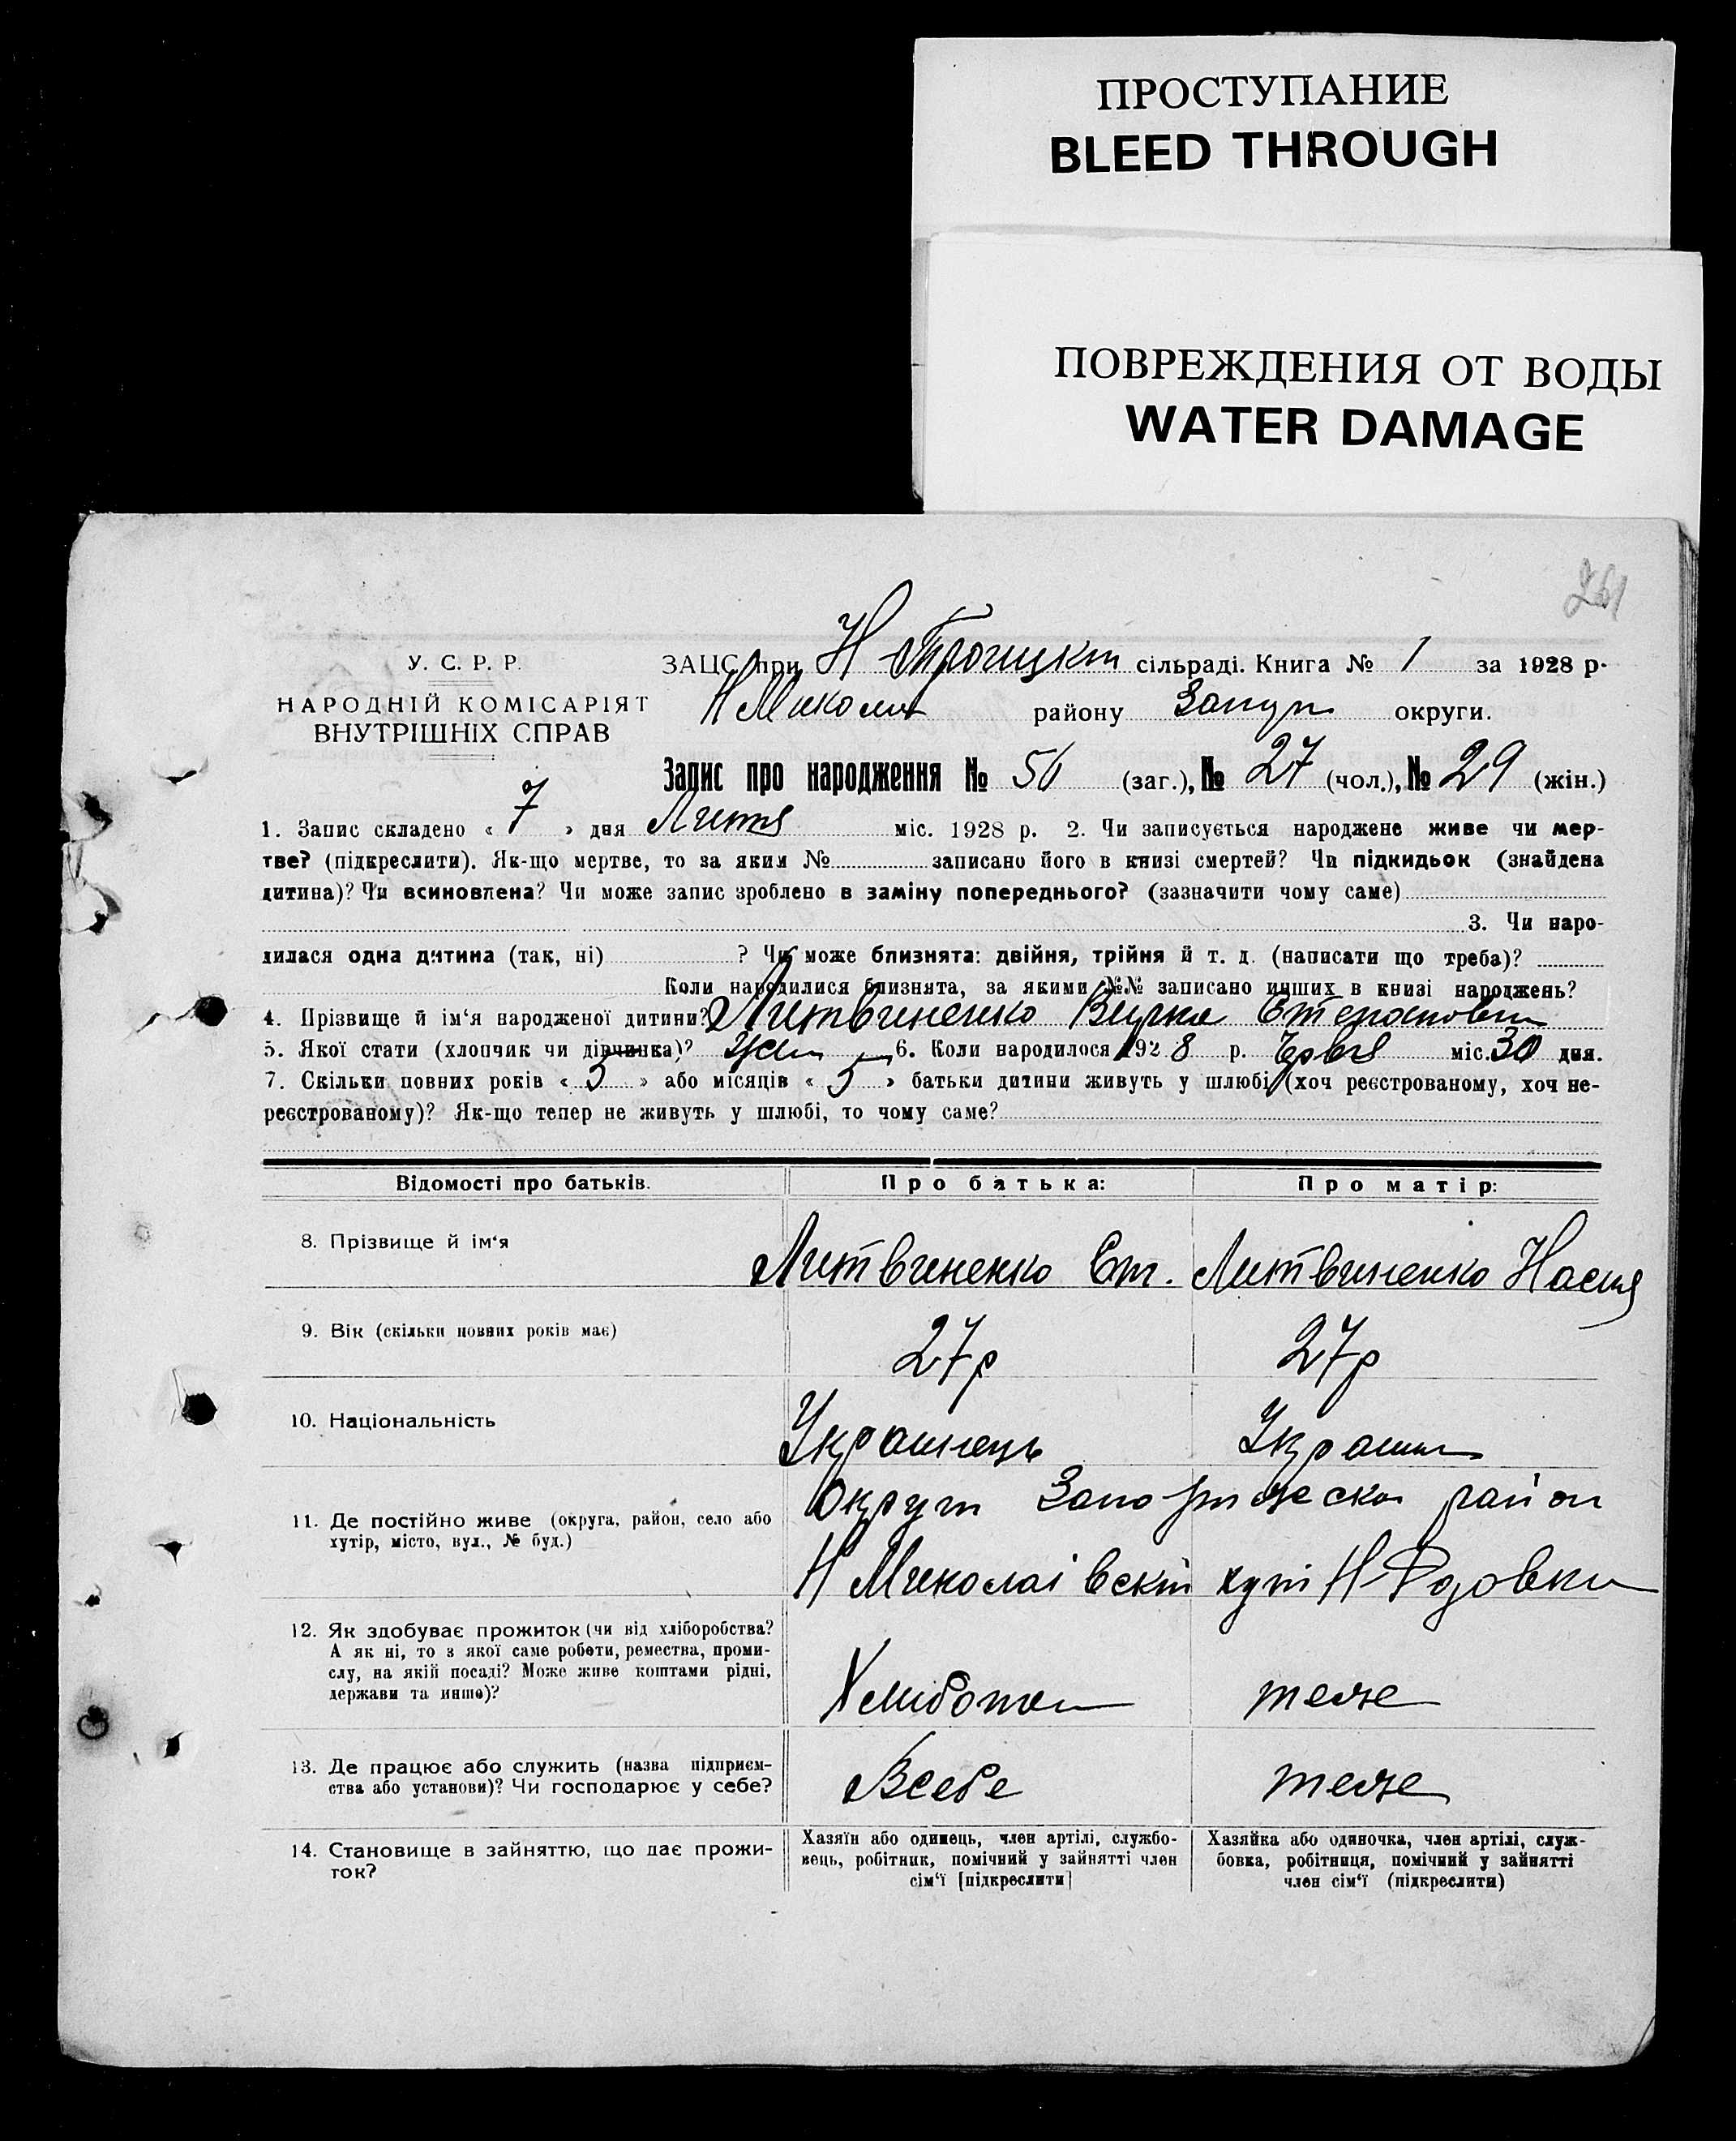 ПРОСТУПАНИЕ
BLEED THROUGH
ПОВРЕЖДЕНИЯ ОТ ВОДЫ
WATER DAMAGE
261
У. С. Р. Р.
НАРОДНІЙ КОМІСАРІЯТ
ВНУТРІШНІХ СПРАВ
ЗАЦС при Н Троицкій сільраді. Книга № 1 за 1928 р.
Н Микол району Запур округи.
Запис про народження № 56 (заг.), № 27 (чол.), № 29 (жін.)
1. Запис складено « 7 » дня Липня міс. 1928 р. 2. Чи записується народжене живе чи мер-
тве? (підкреслити). Як-що мертве, то за яким № записано його в книзі смертей? Чи підкидьок (знайдена
дитина)? Чи всиновлена? Чи може запис зроблено в заміну попереднього? (зазначити чому саме)
3. Чи наро-
дилася одна дитина (так, ні) ? Чи може близнята: двійня, трійня й т. д. (написати що треба)?
Коли народилися близнята, за якими №№ записано инших в книзі народжень?
4. Прізвище й ім‘я народженої дитини? Литвиненко
5. Якої стати (хлопчик чи дівчинка)? жін 6. Коли народилося 1928 р. Червня міс. 30 дня.
7. Скільки повних років « 5 » або місяців « 5 » батьки дитини живуть у шлюбі (хоч реєстрованому, хоч не-
реєстрованому)? Як-що тепер не живуть у шлюбі, то чому саме?
Відомості про батьків.
Про батька:
Про матір:
8. Прізвище й ім‘я
Литвиненко Єт. Литвиненко Настя
9. Вік (скільки повних років має)
27р 27р
10. Національність
Українець Україн
11. Де постійно живе (округа, район, село або
хутір, місто, вул., № буд.)
округи Запоріжска район
Н Миколаівскій хуті Н
12. Як здобуває прожиток (чи від хліборобства?
А як ні, то з якої саме роботи, ремества, проми-
слу, на якій посаді? Може живе коштами рідні,
держави та инше)?
теже
13. Де працює або служить (назва підприєм-
ства або установи)? Чи господарює у себе?
Всебе теже
14. Становище в зайняттю, що дає прожи-
ток?
Хазяїн або одинець, член артілі, службо-
вець, робітник, помічний у зайнятті член
сім‘ї [підкреслити]
Хазяйка або одиночка, член артілі, служ-
бовка, робітниця, помічний у зайнятті
член сім‘ї (підкреслити)